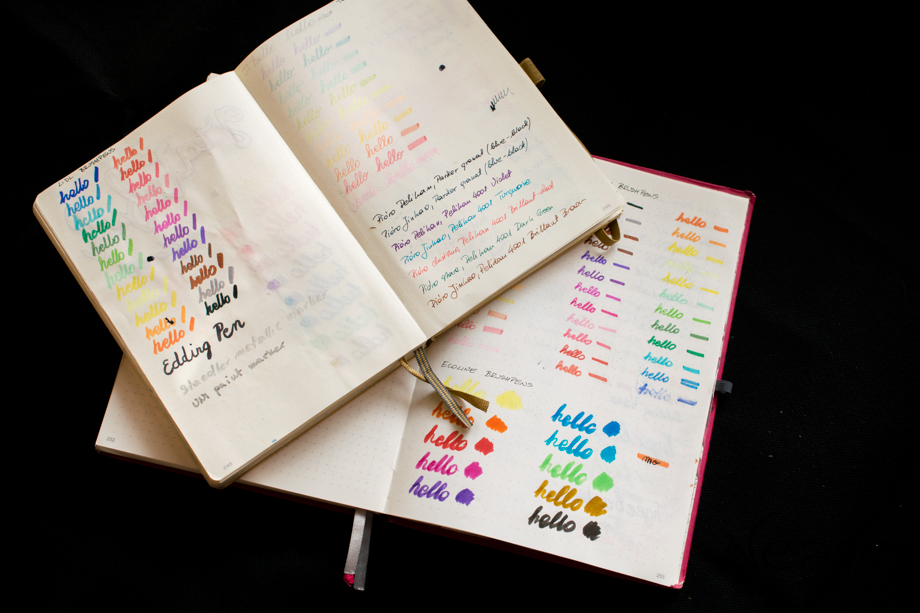 LIDL BRUSHPENS
hello hello
hello hello
hello hello
hello hello
hello hello
hello hello
hello hello
hello hello
hello hello
hello hello
hello hello
Edding Pen
Staedler metallic marker
uni paint marker
hello hello
hello hello
hello hello
hello hello
hello hello
hello hello
hello hello
hello hello
hello hello
Pióro Pelikan, Parker granat (blue-black)
Pióro Jinhao, Parker granat (blue-black)
Pióro Pelikan, Pelikan 4001 Violet
Pióro Jinhao, Pelikan 4001 Turquoise
Pióro Pelikan 4001 Brillant Red
Pióro Pelikan 4001 Dark Green
Pióro Jinhao, Pelikan 4001 Brillant Brown
BRUSHPENS
hello
hello hello
hello hello
hello hello
hello hello
hello hello
hello hello
hello hello
hello hello
hello hello
ECOLINE BRUSHPENS
hello hello
hello hello
hello hello
hello hello
hello hello
252
253